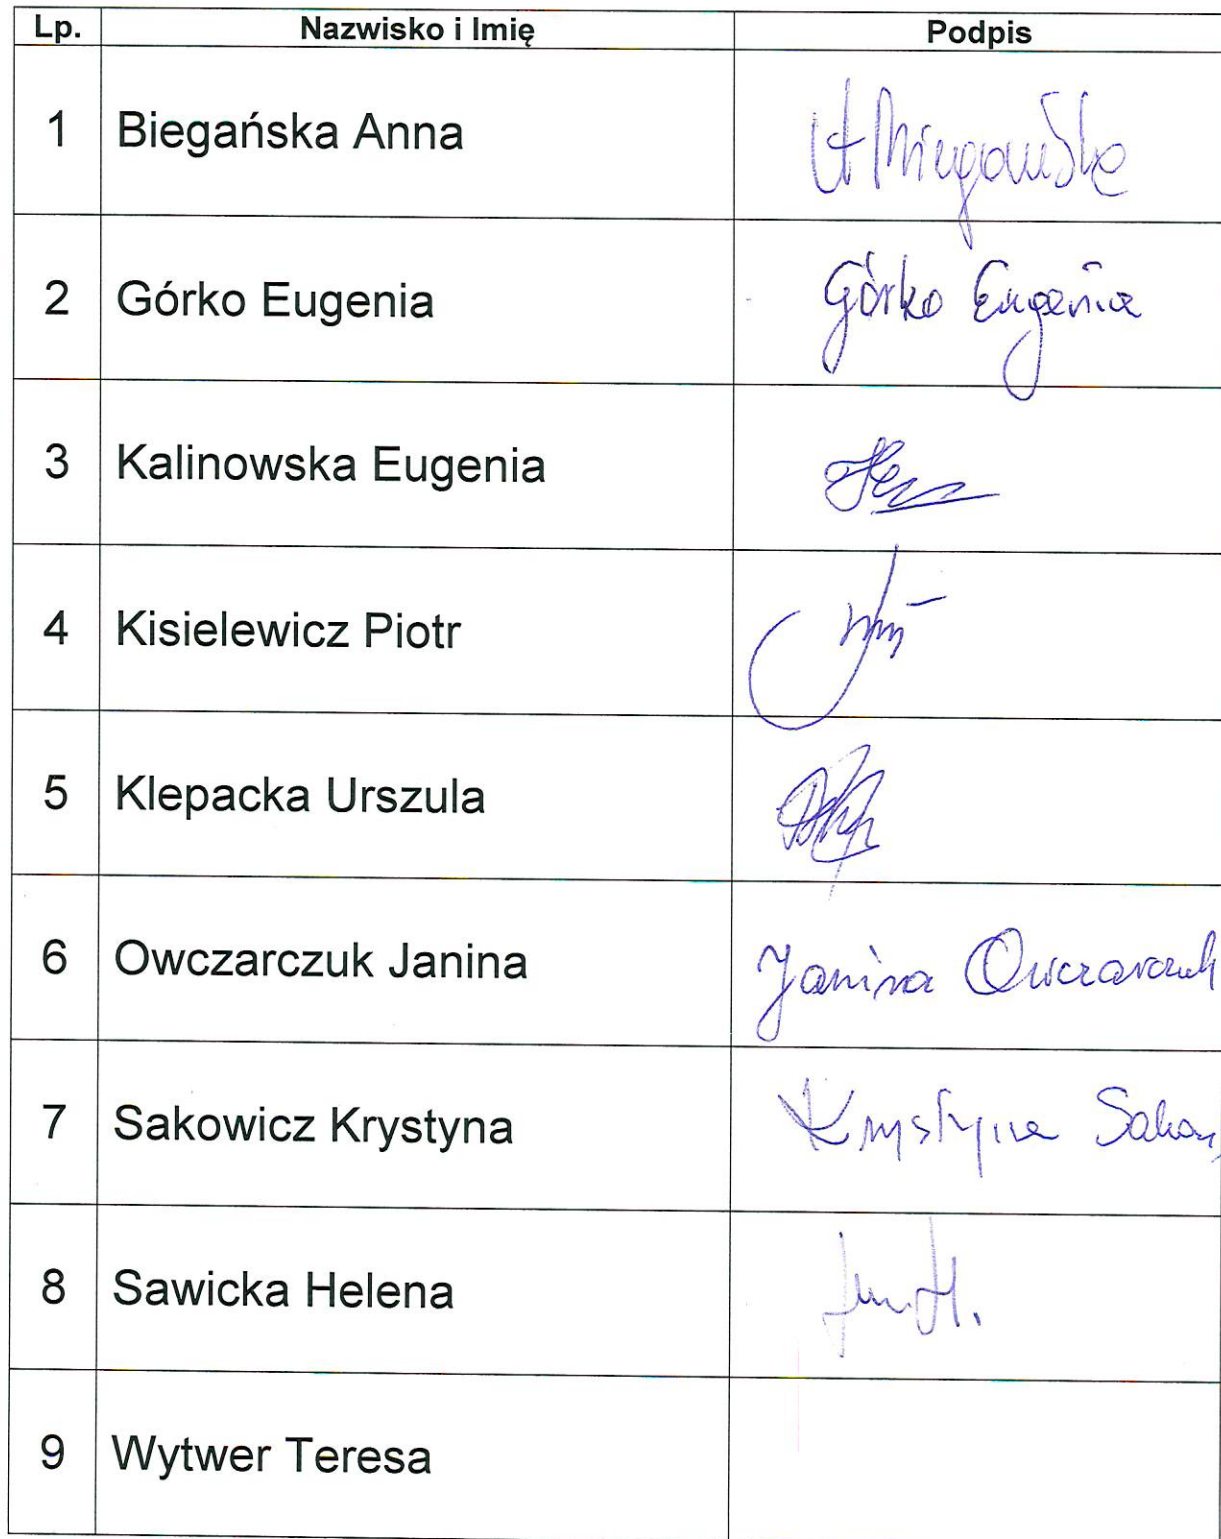 Lp. Nazwisko i Imię Podpis
1 Biegańska Anna A Biegańska
2 Górko Eugenia Górko Eugenia
3 Kalinowska Eugenia
4 Kisielewicz Piotr
5 Klepacka Urszula
6 Owczarczuk Janina Janina Owczarczuk
7 Sakowicz Krystyna Krystyna
8 Sawicka Helena
9 Wytwer Teresa